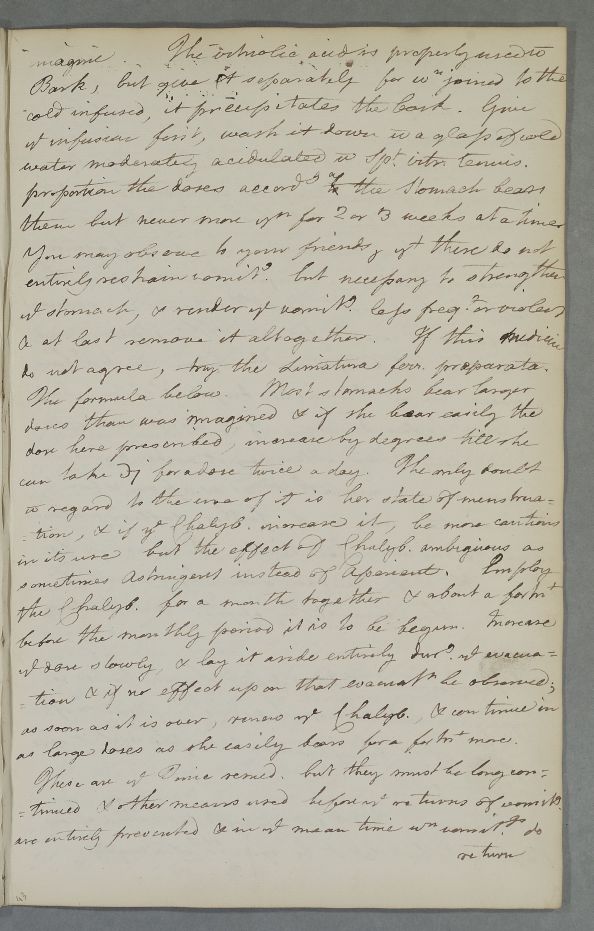 imagine. The vitriolic acid is properly used to
Bark, but give it separately for wn joined to the
cold infused, it precipitates the bark. Give
yt infusion first, wash it down w a glass of cold
water moderately acidulated w Spt. vitr. tenuis.
proportion the doses accordg as the stomach bears
them but never more yn for 2 or 3 weeks at a time
You may observe to your friends, yt these do not
entirely restrain vomitg. but necessary to strengthen
yt stomach, & render yt vomitg. less freqt. or violent
& at last remove it altogether. If this medicine
do not agree, try the Limatura ferr. præparata.
The formula below. Most stomachs bear larger
doses than was imagined & if she bear easily the
dose here prescribed, increase by degrees till she
can take ℈j for a dose twice a day. The only doubt
w regard to the use of it is her state of menstrua=
=tion, & if yt Chalyb. increase it, be more cautious
in its use but the effect of Chalyb. ambiguous as
sometimes Astringent instead of Aperient. Employ
the Chalyb. for a month together & about a fortnt
before the monthly period it is to be begun. Increase
yt dose slowly, & lay it aside entirely durg. yt evacua=
=tion & if no effect upon that evacuatn be observed;
as soon as it is over, renew yt Chalyb., & continue in
as large doses as she easily bears for a fortnt more.
These are yt Tonic remed. but they must be long con=
=tinued & other means used before yt returns of vomitg.
are entirely prevented & in yt mean time wn vomitgs do
return